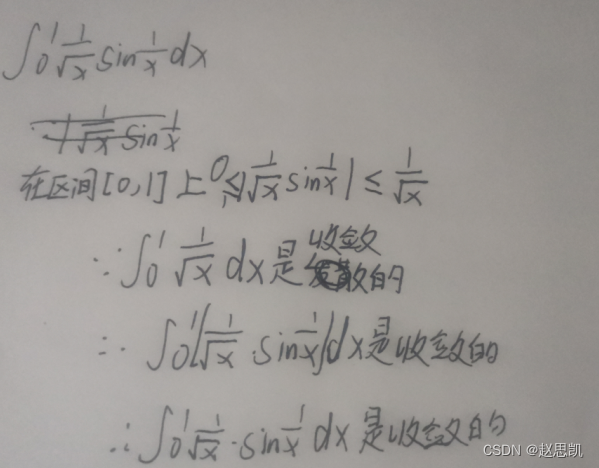 ∫₀¹ 1/√x sin 1/x dx
|1/√x sin 1/x
在区间[0,1]上 0≤|1/√x sin 1/x| ≤ 1/√x
∵∫₀¹ 1/√x dx是收敛的
∴ ∫₀¹|1/√x·sin 1/x|dx是收敛的
∴∫₀¹ 1/√x·sin 1/x dx是收敛的
CSDN @赵思凯